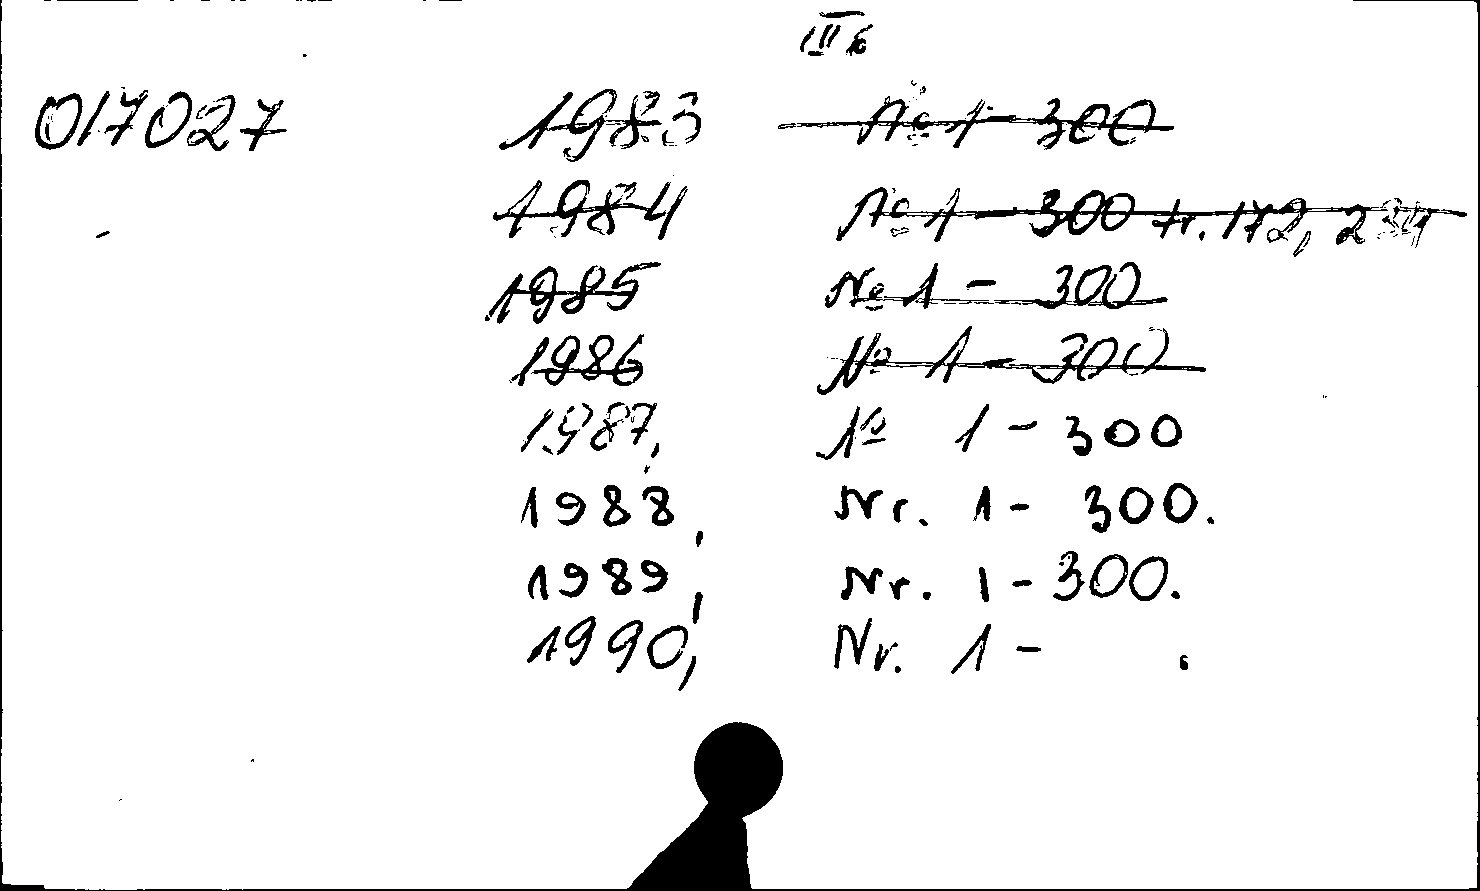 III б
017027 1983 № 1 - 300
1984 № 1 - 300 tr. 172, 234
1985 № 1 - 300
1986 № 1 - 300
1987, № 1 - 300
1988, Nr. 1 - 300.
1989, Nr. 1 - 300.
1990, Nr. 1 - .